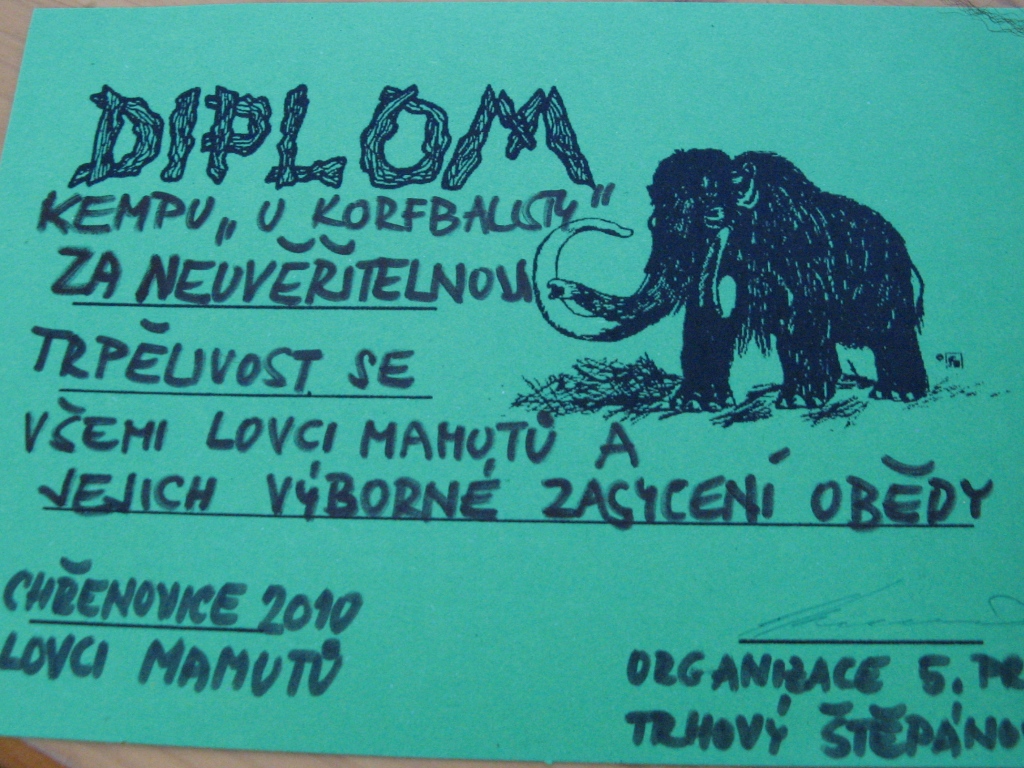 DIPLOM
KEMPU „U KORFBALISTY"
ZA NEUVĚŘITELNOU
TRPĚLIVOST SE
VŠEMI LOVCI MAMUTŮ A
JEJICH VÝBORNÉ ZASYCENÍ OBĚDY
CHŘENOVICE 2010
LOVCI MAMUTŮ
ORGANIZACE 5. PR
TRHOVÝ ŠTĚPÁNO